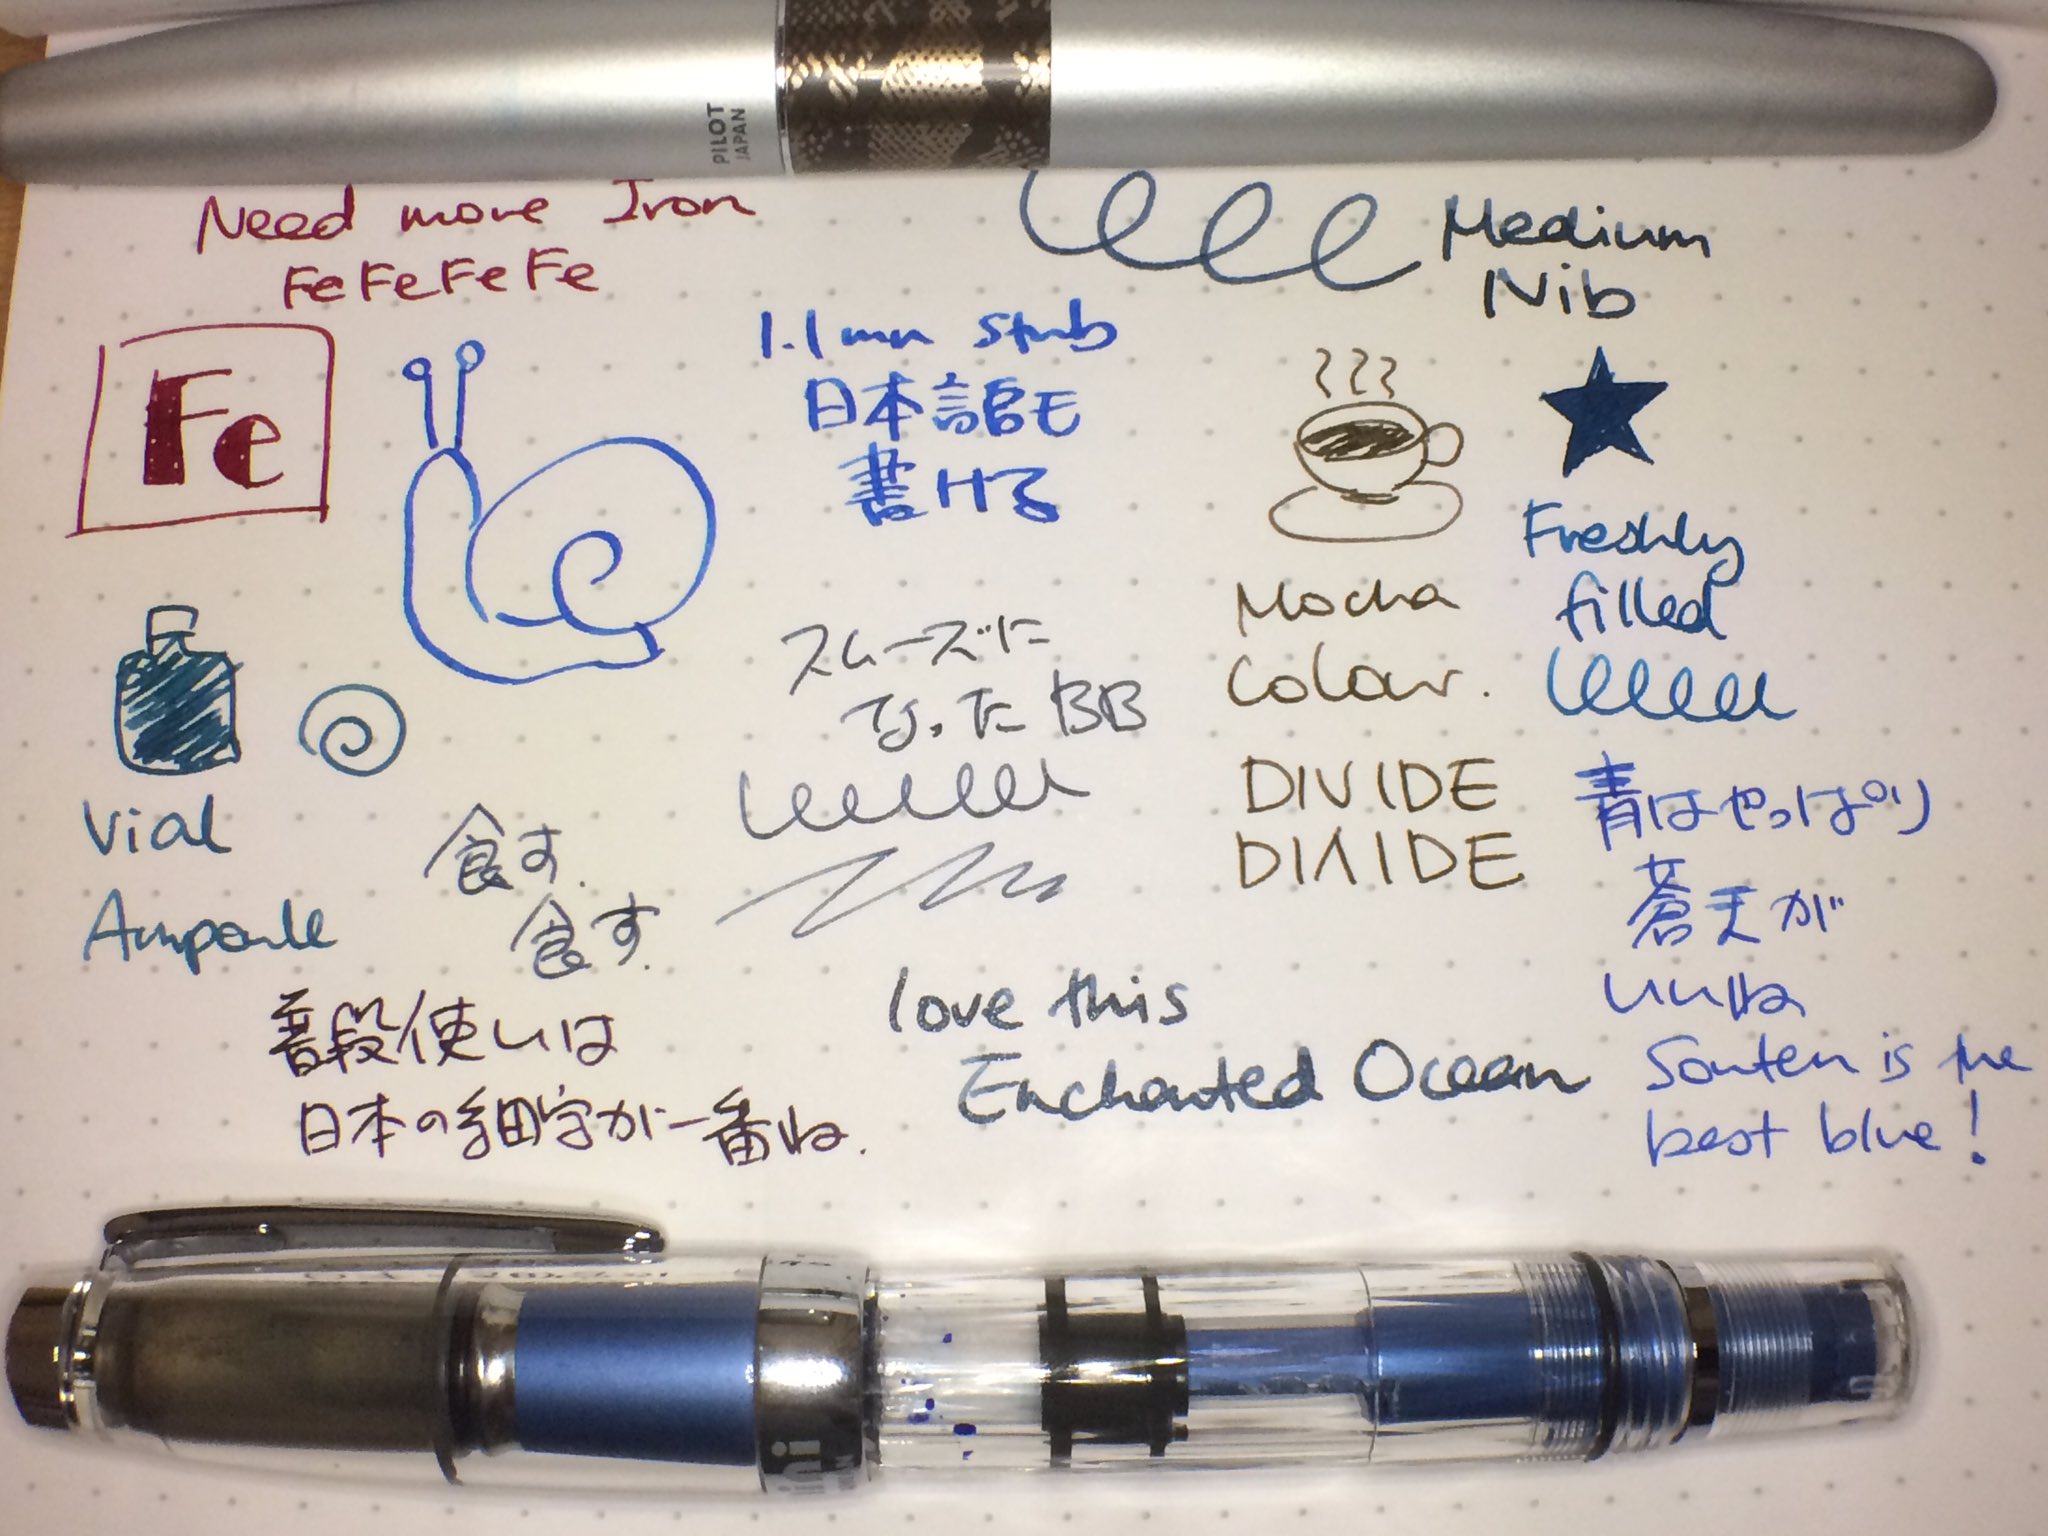 PILOT
JAPAN
Need more Iron
FeFeFeFe
Medium
Nib
Fe
1.1mm stub
日本語モ
書ける
Freshly
filled
Mocha
Colour.
スムーズに
なったBB
Vial
Ampoule
食す.
食す.
DIVIDE
DIVIDE
青はやっぱり
蒼天が
いいね
Souten is the
best blue!
love this
Enchanted Ocean
普段使いは
日本の細字が一番ね.
ini